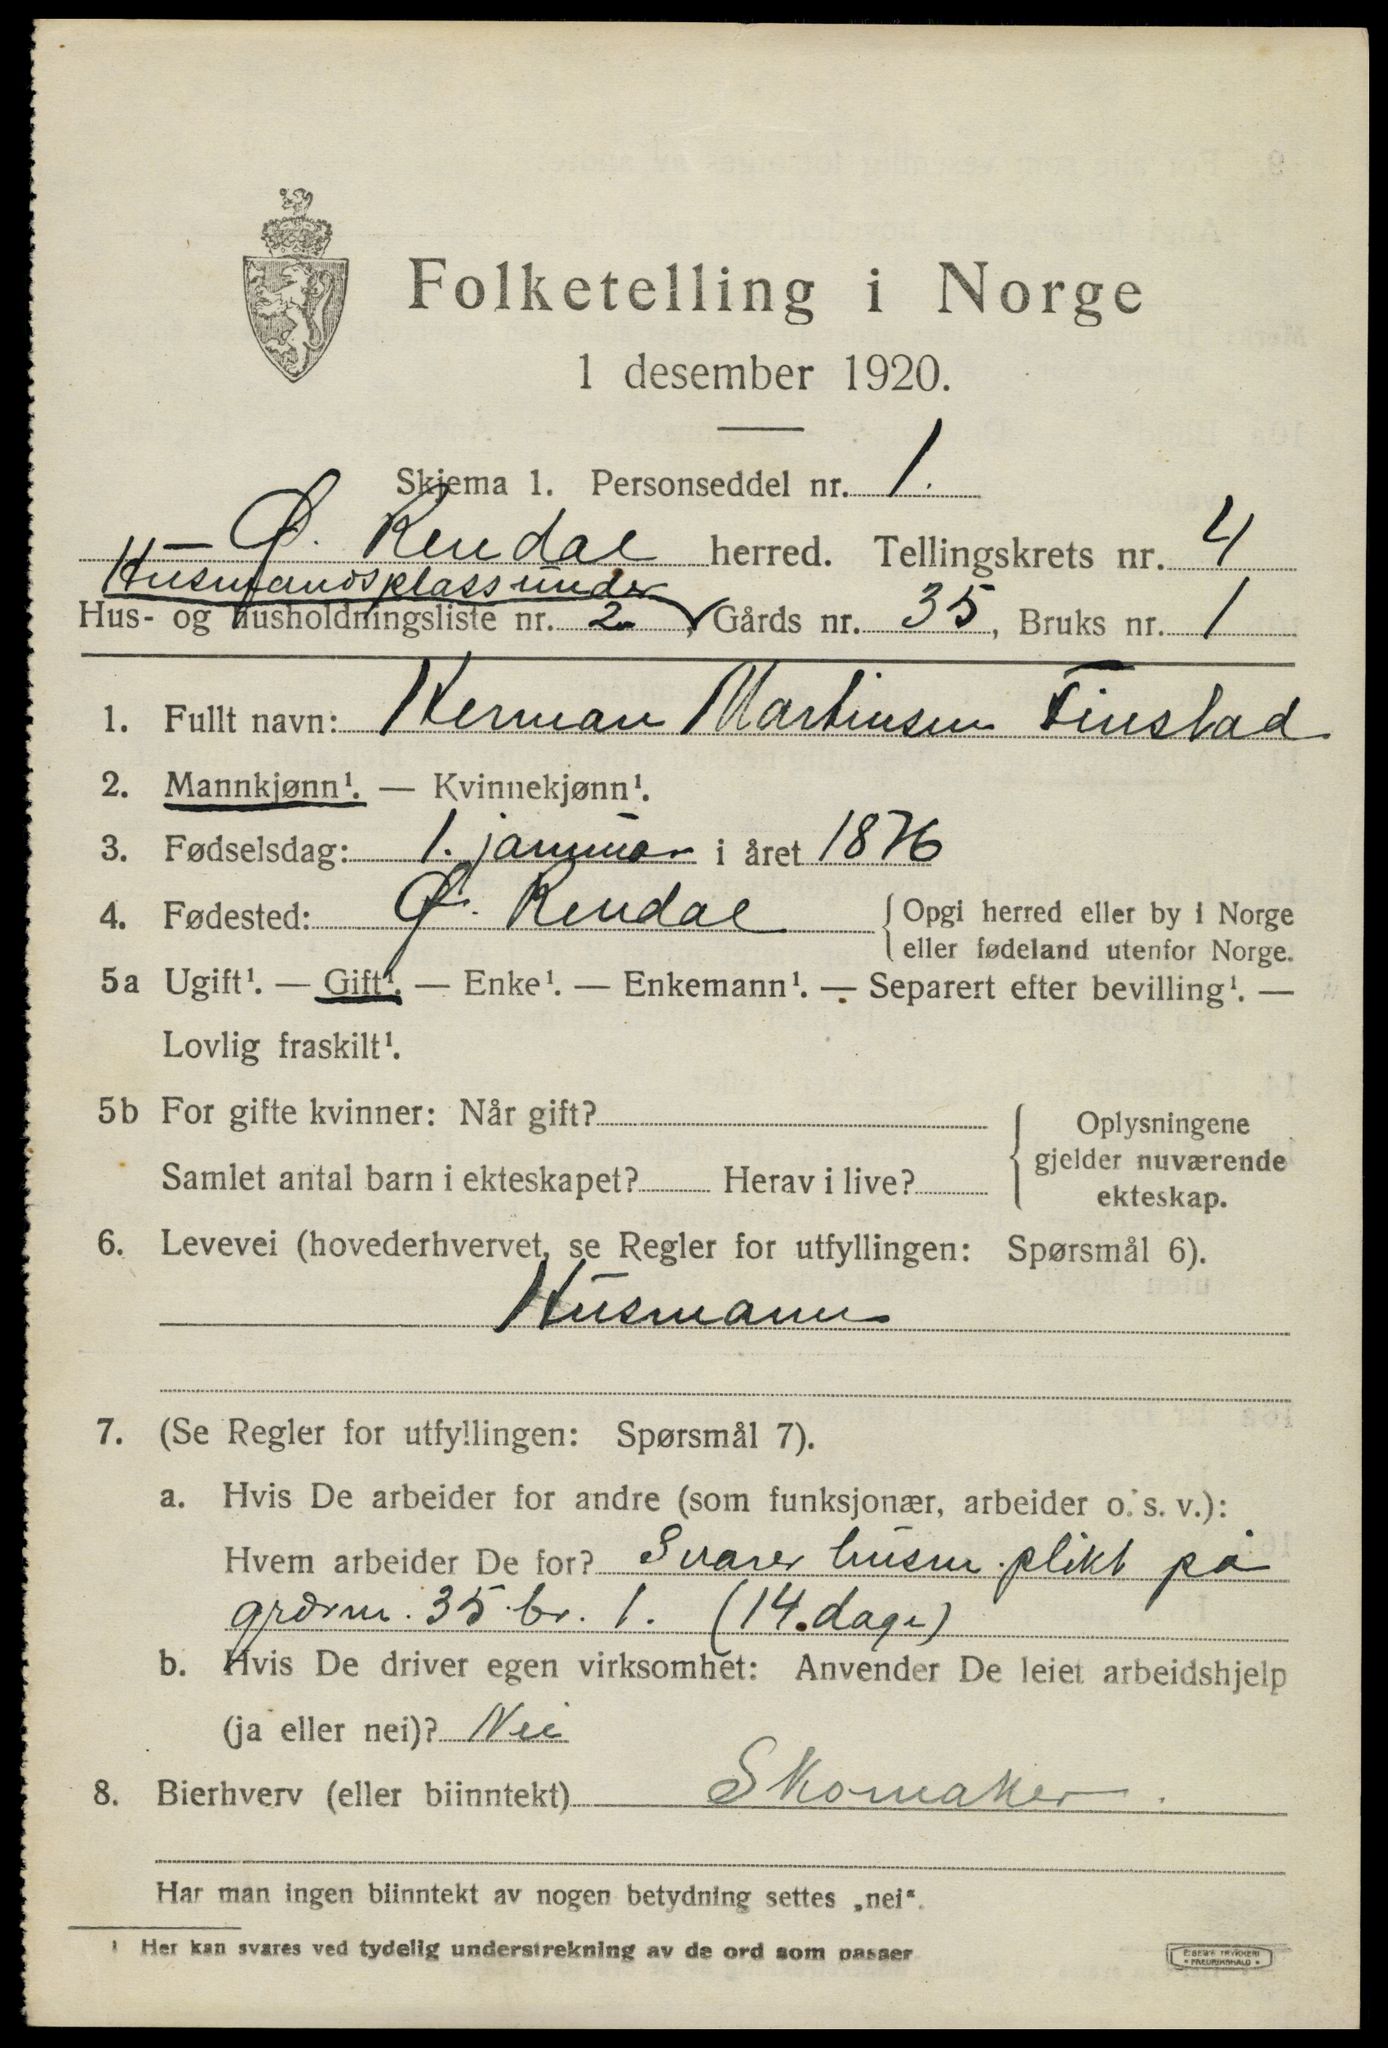 Folketelling i Norge
1 desember 1920.
Skjema 1. Personseddel nr. 1.
Ø. Rendal herred. Tellingskrets nr. 4
Husmandsplass under
Hus- og husholdningsliste nr. 2, Gårds nr. 35, Bruks nr. 1
1. Fullt navn: Herman Martinsen Finstad
2. Mannkjønn¹. — Kvinnekjønn¹.
3. Fødselsdag: 1. januar i året 1876
4. Fødested: Ø. Rendal { Opgi herred eller by i Norge
eller fødeland utenfor Norge.
5a Ugift¹. — Gift¹. — Enke¹. — Enkemann¹. — Separert efter bevilling¹. —
Lovlig fraskilt¹.
5b For gifte kvinner: Når gift? { Oplysningene
gjelder nuværende
Samlet antal barn i ekteskapet? Herav i live? ekteskap.
6. Levevei (hovederhvervet, se Regler for utfyllingen: Spørsmål 6).
Husmann
7. (Se Regler for utfyllingen: Spørsmål 7).
a. Hvis De arbeider for andre (som funksjonær, arbeider o. s. v.):
Hvem arbeider De for? Svarer husm. plikt på
grdsnr. 35 br. 1. (14. dage)
b. Hvis De driver egen virksomhet: Anvender De leiet arbeidshjelp
(ja eller nei)? Nei
8. Bierhverv (eller biinntekt) Skomaker.
Har man ingen biinntekt av nogen betydning settes „nei“.
¹ Her kan svares ved tydelig understrekning av de ord som passer